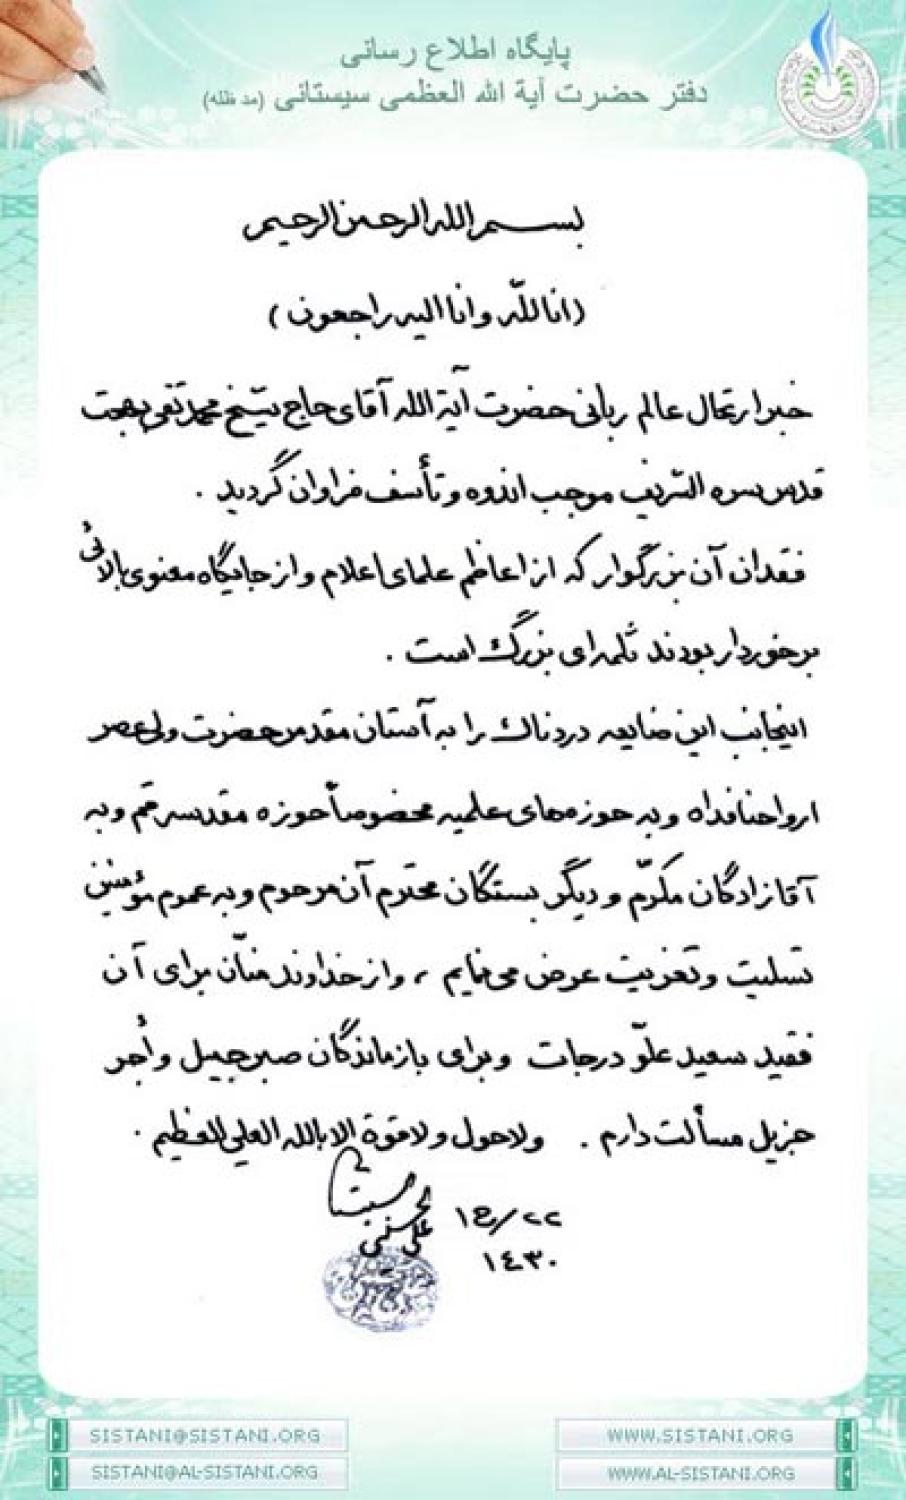 پایگاه اطلاع رسانی
دفتر حضرت آیة الله العظمی سیستانی (مد ظله)
بسم الله الرحمن الرحیم
(انا للّه و انا الیه راجعون)
خبر ارتحال عالم ربانی حضرت آیة الله آقای حاج شیخ محمد تقی بهجت
قدس سره الشریف موجب اندوه و تأسف فراوان گردید .
فقدان آن بزرگوار که از اعاظم علمای اعلام و از جایگاه معنوی بالائی
برخوردار بودند ثلمه‌ای بزرگ است .
اینجانب این ضایعه دردناک را به آستان مقدس حضرت ولی عصر
ارواحنا فداه و به حوزه‌های علمیه مخصوصاً حوزه مقدسه قم و به
آقازادگان مکرّم و دیگر بستگان محترم آن مرحوم و به عموم مؤمنین
تسلیت و تعزیت عرض می‌نمایم ، و از خداوند منّان برای آن
فقید سعید علوّ درجات و برای بازماندگان صبر جمیل و أجر
جزیل مسألت دارم . ولا حول ولا قوة الا بالله العلی العظیم .
علی الحسینی السیستانی
٢٢/ج١
١٤٣٠
SISTANI@SISTANI.ORG WWW.SISTANI.ORG
SISTANI@AL-SISTANI.ORG WWW.AL-SISTANI.ORG